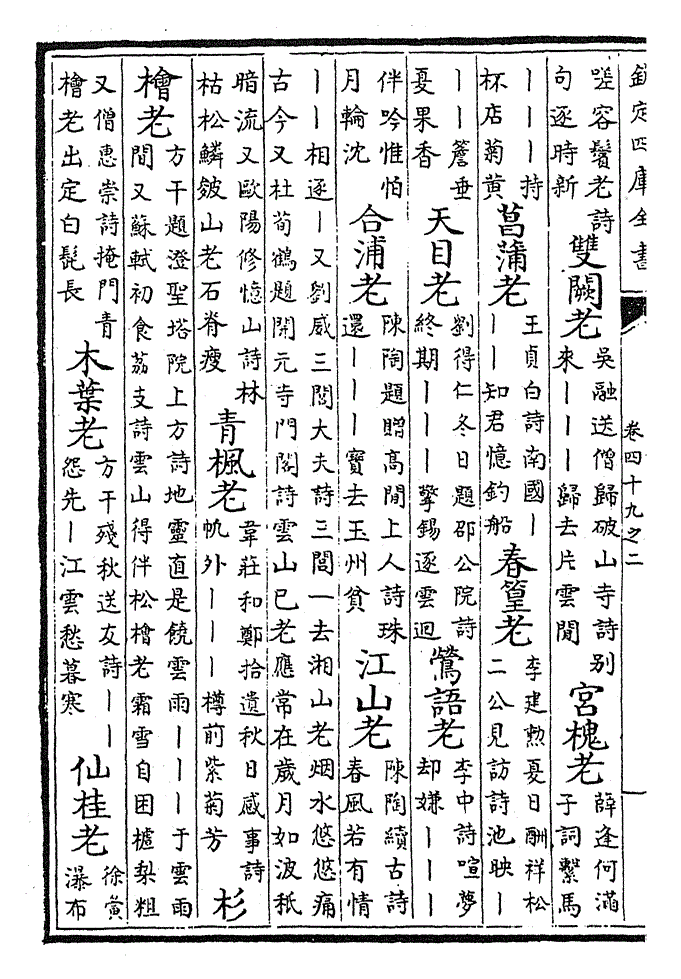 欽定四庫全書　卷四十九之二
嗟容鬢老詩
句逐時新
雙闕老
吳融送僧歸破山寺詩別
來丨丨丨歸去片雲閒
宮槐老
薛逢何滿
子詞繫馬
丨丨丨持
杯店菊黄
菖蒲老
王貞白詩南國丨
丨丨知君憶釣船
春篁老
李建勲憂日酬祥松
二公見訪詩池映丨
丨丨簷垂
憂果香
天目老
劉得仁冬日題邵公院詩
終期丨丨丨擎錫逐雲迴
鶯語老
李中詩喧夢
却嫌丨丨丨
伴吟惟怕
月輪沈
合浦老
陳陶題贈高閒上人詩珠
還丨丨丨寶去玉州貧
江山老
陳陶續古詩
春風若有情
丨丨相逐丨又劉威三閭大夫詩三閭一去湘山老烟水悠悠痛
古今又杜荀鶴題開元寺門閣詩雲山已老應常在歲月如波秖
暗流又歐陽修憶山詩林
枯松鱗皴山老石脊瘦
青楓老
韋莊和鄭拾遺秋日感事詩
帆外丨丨丨樽前紫菊芳
杉
檜老
方干題澄聖塔院上方詩地靈直是饒雲雨丨丨丨于雲雨
間又蘇軾初食荔支詩雲山得伴松檜老霜雪自困樝梨粗
又僧惠崇詩掩門青
檜老出定白髭長
木葉老
方干殘秋送友詩丨丨
怨先丨江雲愁暮寒
仙桂老
徐夤
瀑布